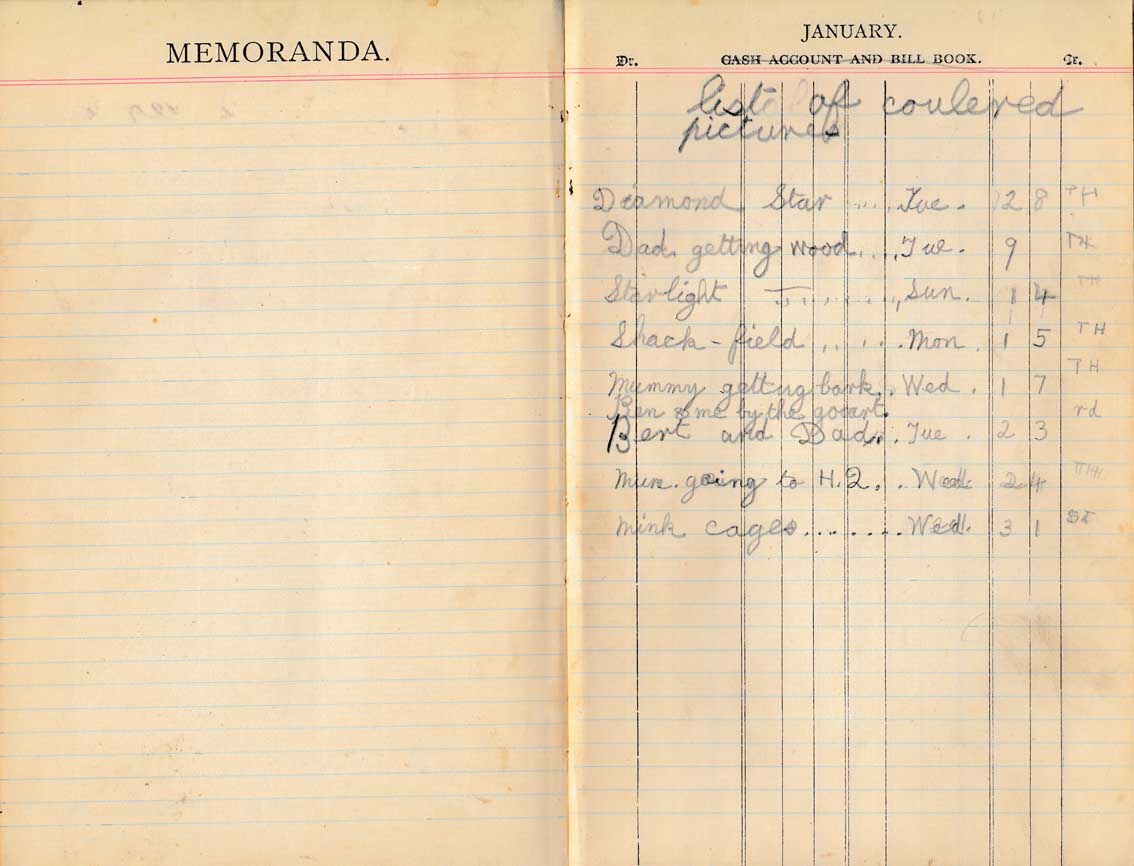 MEMORANDA.
JANUARY.
Dr. CASH ACCOUNT AND BILL BOOK. Cr.
list of coulered
pictures
Diamond Star .... Tue. 28 TH
Dad getting wood .... Tue. 9 TH
Starlight ....... Sun. 14 TH
Shack-field ..... Mon. 15 TH
Mummy getting bark. Wed. 17 TH
Ben & me by the gocart.
Bert and Dad... Tue. 23 rd
Mum. going to H.Q.. Wed. 24 TH
Mink cages ....... Wed. 31 ST